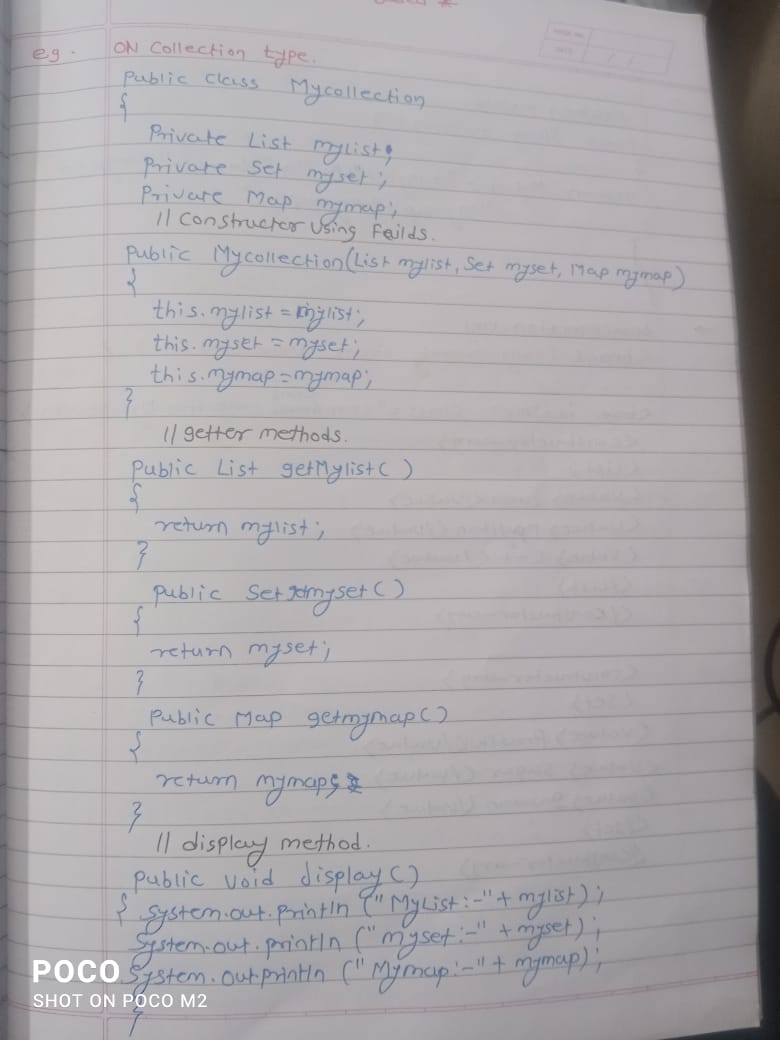 eg. ON Collection type.
Public Class Mycollection
{
Private List mylist;
Private Set myset;
Private Map mymap;
// Constructor Using Feilds.
Public Mycollection(List mylist, Set myset, Map mymap)
{
this.mylist = mylist;
this.myset = myset;
this.mymap = mymap;
}
// getter methods.
Public List getMylist( )
{
return mylist;
}
Public Set getmyset( )
{
return myset;
}
Public Map getmymap( )
{
return mymap;
}
// display method.
Public void display( )
{ System.out.println ("MyList:-" + mylist);
System.out.println ("myset:-" + myset);
System.out.println ("Mymap:-" + mymap);
}
POCO
SHOT ON POCO M2